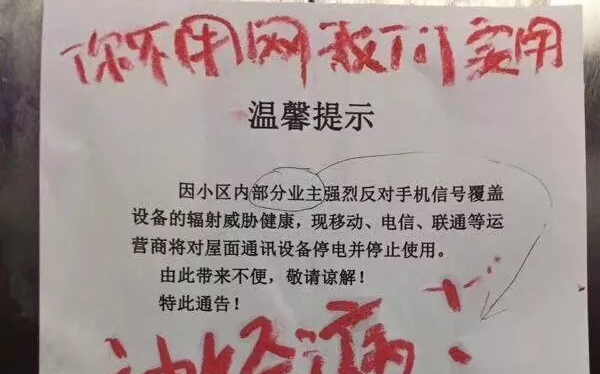 你不用网我们实用
温馨提示
因小区内部分业主强烈反对手机信号覆盖
设备的辐射威胁健康，现移动、电信、联通等运
营商将对屋面通讯设备停电并停止使用。
由此带来不便，敬请谅解！
特此通告！
神经病